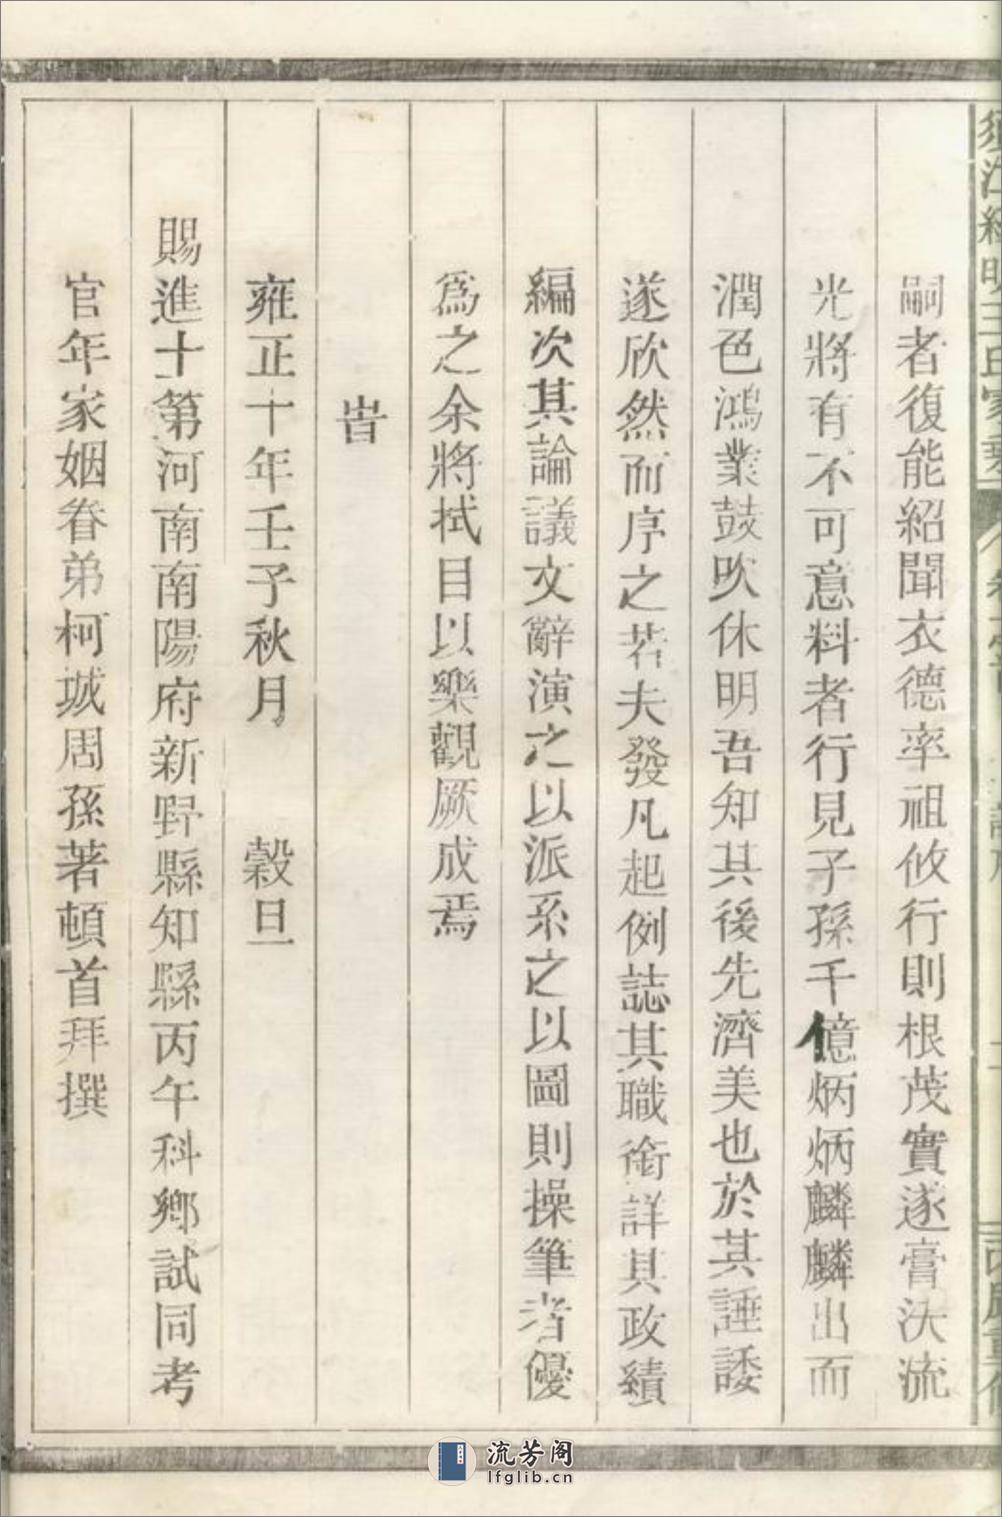 嗣者復能紹聞衣德率祖攸行則根茂實遂膏沃流
光將有不可意料者行見子孫千億炳炳麟麟出而
潤色鴻業鼓吹休明吾知其後先濟美也於其諈諉
遂欣然而序之若夫發凡起例誌其職銜詳其政績
編次其論議文辭演之以派系之以圖則操筆者優
爲之余將拭目以樂觀厥成焉
旹
雍正十年壬子秋月 穀旦
賜進士第河南南陽府新野縣知縣丙午科鄉試同考
官年家姻眷弟柯城周孫著頓首拜撰
流芳阁
lfglib.cn